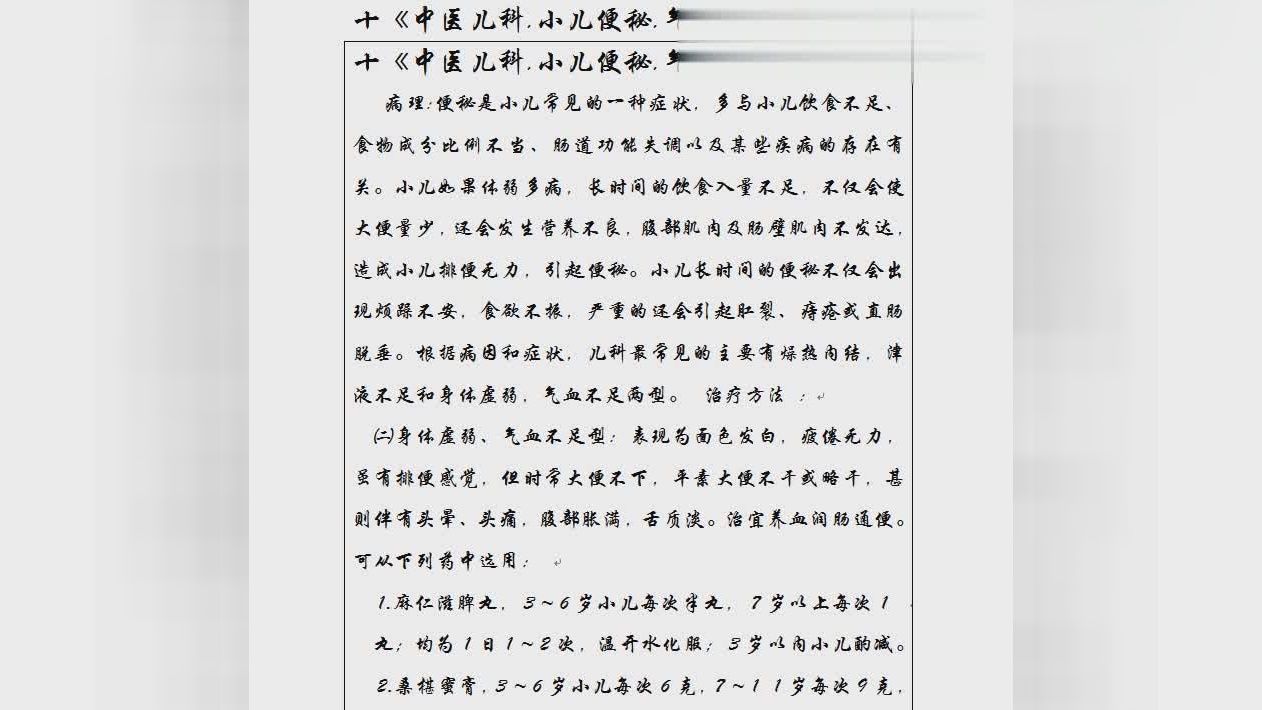 十《中医儿科,小儿便秘,
十《中医儿科,小儿便秘,
病理:便秘是小儿常见的一种症状,多与小儿饮食不足、
食物成分比例不当、肠道功能失调以及某些疾病的存在有
关。小儿如果体弱多病,长时间的饮食入量不足,不仅会使
大便量少,还会发生营养不良,腹部肌肉及肠壁肌肉不发达,
造成小儿排便无力,引起便秘。小儿长时间的便秘不仅会出
现烦躁不安,食欲不振,严重的还会引起肛裂、痔疮或直肠
脱垂。根据病因和症状,儿科最常见的主要有燥热内结,津
液不足和身体虚弱,气血不足两型。 治疗方法 :
㈡身体虚弱、气血不足型:表现为面色发白,疲倦无力,
虽有排便感觉,但时常大便不下,平素大便不干或略干,甚
则伴有头晕、头痛,腹部胀满,舌质淡。治宜养血润肠通便。
可从下列药中选用:
1.麻仁滋脾丸,3~6岁小儿每次半丸,7岁以上每次1
丸;均为1日1~2次,温开水化服;3岁以内小儿酌减。
2.桑椹蜜膏,3~6岁小儿每次6克,7~11岁每次9克,